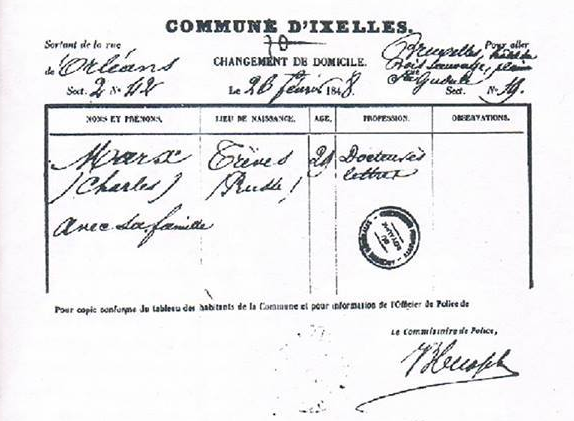 COMMUNE D'IXELLES.
Sortant de la rue
de Orléans
Sect. 2 N° 42
CHANGEMENT DE DOMICILE.
Le 26 février 1848.
Bruxelles, Pour aller
Bois Sauvage, plaine
Ste Gudule
Sect. N° 19.
NOMS ET PRÉNOMS. LIEU DE NAISSANCE. AGE. PROFESSION. OBSERVATIONS.
Marx Trèves 29 Docteur ès
(Charles) (Prusse) lettres
avec sa famille
Pour copie conforme du tableau des habitants de la Commune et pour information de l'Officier de Police de
Le Commissaire de Police,